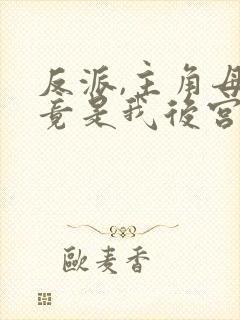 反派,主角母
竟是我後宮
歐麦香